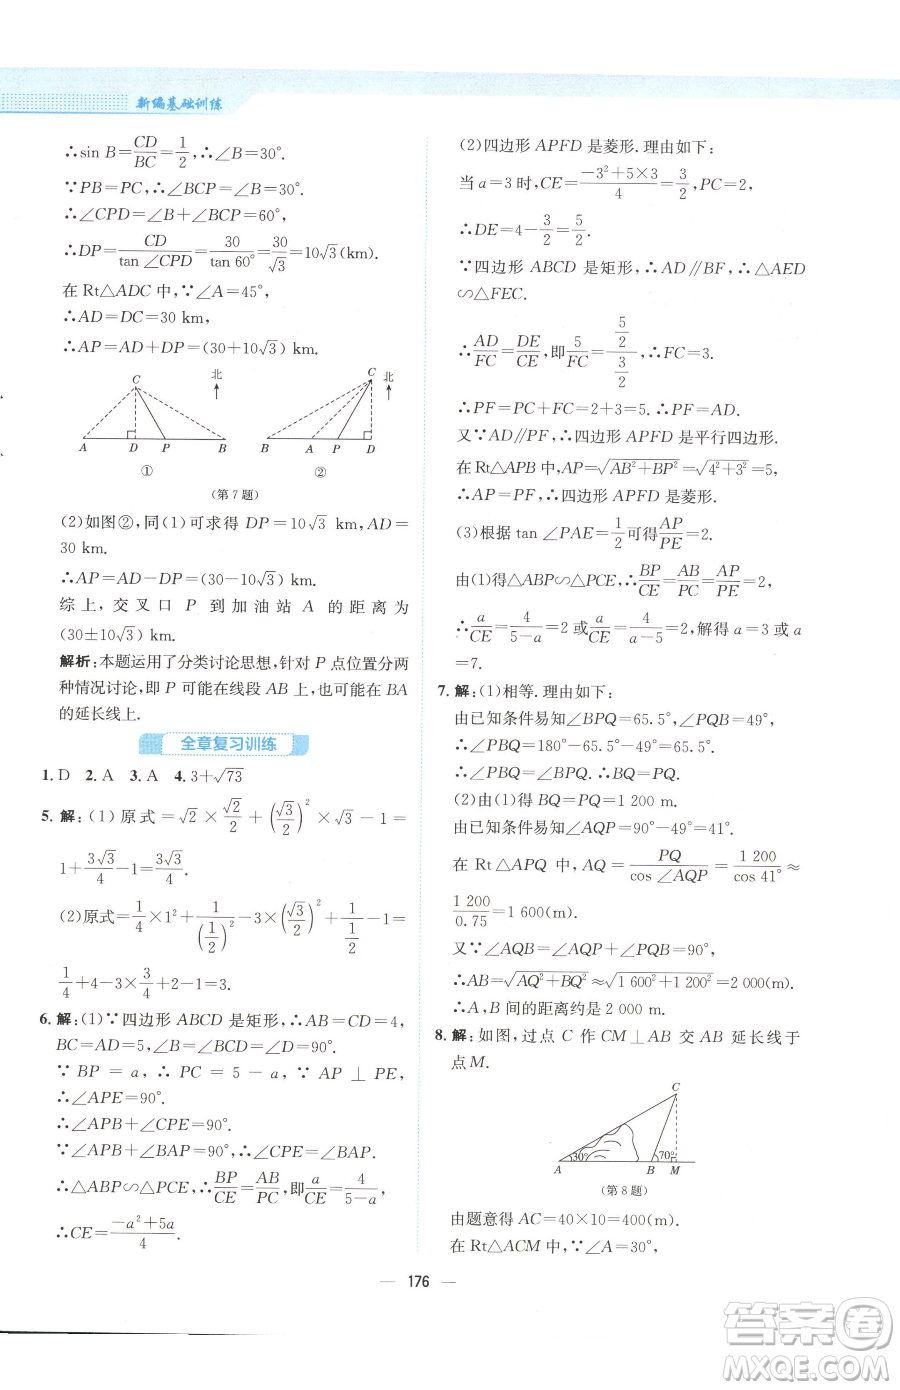 新编基础训练
∴sin B=CD/BC=1/2,∴∠B=30°.
∵PB=PC,∴∠BCP=∠B=30°.
∴∠CPD=∠B+∠BCP=60°,
∴DP=CD/tan∠CPD=30/tan 60°=30/√3=10√3(km).
在 Rt△ADC 中,∵∠A=45°,
∴AD=DC=30 km,
∴AP=AD+DP=(30+10√3)km.
C 北 A D P B ①
C 北 B A P D ②
(第 7 题)
(2)如图②,同(1)可求得 DP=10√3 km,AD=
30 km.
∴AP=AD-DP=(30-10√3)km.
综上,交叉口 P 到加油站 A 的距离为
(30±10√3)km.
解析:本题运用了分类讨论思想,针对 P 点位置分两
种情况讨论,即 P 可能在线段 AB 上,也可能在 BA
的延长线上.
全章复习训练
1. D 2. A 3. A 4. 3+√73
5. 解:(1)原式=√2×√2/2+(√3/2)²×√3-1=
1+3√3/4-1=3√3/4.
(2)原式=1/4×1²+1/(1/2)²-3×(√3/2)²+1/(1/2)=
1/4+4-3×3/4+2-1=3.
6. 解:(1)∵四边形 ABCD 是矩形,∴AB=CD=4,
BC=AD=5,∠B=∠BCD=90°.
∵BP=a,∴PC=5-a,∵AP⊥PE,
∴∠APE=90°.
∴∠APB+∠CPE=90°.
∵∠APB+∠BAP=90°,∴∠CPE=∠BAP.
∴△ABP∽△PCE,∴BP/CE=AB/PC,即a/CE=4/(5-a),
∴CE=(-a²+5a)/4.
(2)四边形 APFD 是菱形. 理由如下:
当 a=3 时,CE=(-3²+5×3)/4=3/2,PC=2,
∴DE=4-3/2=5/2.
∵四边形 ABCD 是矩形,∴AD∥BF,∴△AED
∽△FEC.
∴AD/FC=DE/CE,即5/FC=(5/2)/(3/2),∴FC=3.
∴PF=PC+FC=2+3=5. ∴PF=AD.
又∵AD∥PF,∴四边形 APFD 是平行四边形.
在 Rt△APB 中,AP=√(AB²+BP²)=√(4²+3²)=5,
∴AP=PF,∴四边形 APFD 是菱形.
(3)根据 tan∠PAE=1/2可得AP/PE=2.
由(1)得△ABP∽△PCE,∴BP/CE=AB/PC=AP/PE=2,
∴a/CE=4/(5-a)=2或a/CE=4/(a-5)=2,解得 a=3 或 a
=7.
7. 解:(1)相等. 理由如下:
由已知条件易知∠BPQ=65.5°,∠PQB=49°,
∴∠PBQ=180°-65.5°-49°=65.5°.
∴∠PBQ=∠BPQ,∴BQ=PQ.
(2)由(1)得 BQ=PQ=1 200 m.
由已知条件易知∠AQP=90°-49°=41°.
在 Rt△APQ 中,AQ=PQ/cos∠AQP=1 200/cos 41°≈
1 200/0.75=1 600(m).
又∵∠AQB=∠AQP+∠PQB=90°,
∴AB=√(AQ²+BQ²)≈√(1 600²+1 200²)=2 000(m).
∴A,B 间的距离约是 2 000 m.
8. 解:如图,过点 C 作 CM⊥AB 交 AB 延长线于
点M.
C 30° 70° A B M
(第 8 题)
由题意得 AC=40×10=400(m).
在 Rt△ACM 中,∵∠A=30°,
176
答案圈
MXQE.COM